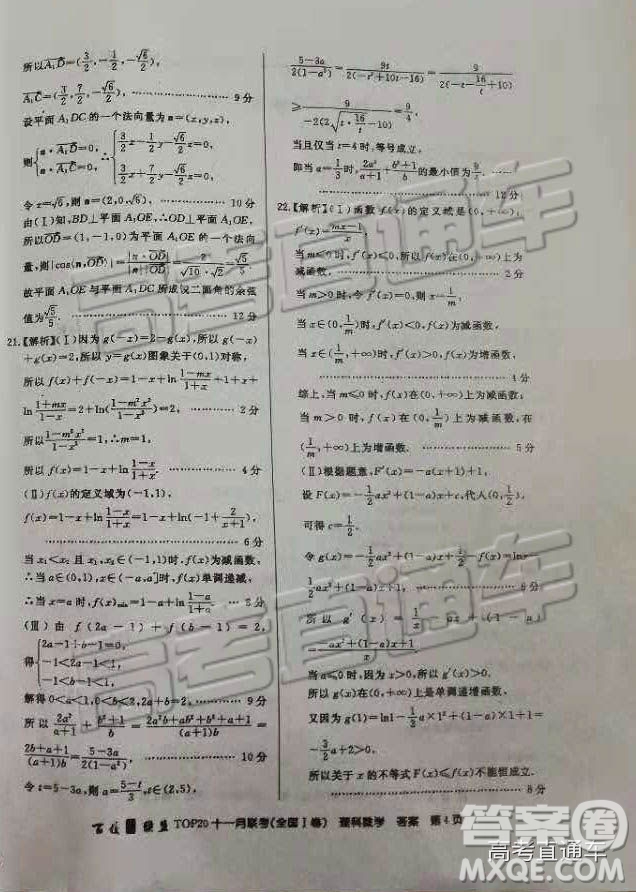 所以$\overrightarrow{A_1D}=(\frac{3}{2},-\frac{1}{2},-\frac{\sqrt{6}}{2})$,
$\overrightarrow{A_1C}=(\frac{3}{2},\frac{7}{2},-\frac{\sqrt{6}}{2})$ ………… 9分
设平面A₁DC的一个法向量为n=(x,y,z),
则$\begin{cases}n\cdot\overrightarrow{A_1D}=0,\\n\cdot\overrightarrow{A_1C}=0,\end{cases}$∴$\begin{cases}\frac{3}{2}x-\frac{1}{2}y-\frac{\sqrt{6}}{2}z=0,\\\frac{3}{2}x+\frac{7}{2}y-\frac{\sqrt{6}}{2}z=0,\end{cases}$
令z=√6,则n=(2,0,√6). ………… 10分
由(Ⅰ)知,BD⊥平面A₁OE,∴OD⊥平面A₁OE,
所以$\overrightarrow{OD}$=(1,-1,0)为平面A₁OE的一个法向
量,则|cos⟨n,$\overrightarrow{OD}$⟩|=$\frac{|n\cdot\overrightarrow{OD}|}{|n||\overrightarrow{OD}|}=\frac{2}{\sqrt{10}\times\sqrt{2}}=\frac{\sqrt{5}}{5}$
故平面A₁OE与平面A₁DC所成锐二面角的余弦
值为$\frac{\sqrt{5}}{5}$. ………… 12分
21.【解析】(Ⅰ)因为g(-x)=2-g(x),所以g(-x)
+g(x)=2,所以y=g(x)图象关于(0,1)对称,
所以f(x)+f(-x)=1-x+ln$\frac{1-mx}{1+x}$+1+x+
ln$\frac{1+mx}{1-x}$=2+ln($\frac{1-m^2x^2}{1-x^2}$)=2, ………… 2分
所以$\frac{1-m^2x^2}{1-x^2}$=1,∴m=1.
所以f(x)=1-x+ln$\frac{1-x}{1+x}$. ………… 4分
(Ⅱ)f(x)的定义域为(-1,1),
f(x)=1-x+ln$\frac{1-x}{1+x}$=1-x+ln(-1+$\frac{2}{x+1}$),
………… 6分
当x₁<x₂且x₁,x₂∈(-1,1)时,f(x)为减函数,
∴当a∈(0,1),x∈(-a,a]时,f(x)单调递减,
∴当x=a时,f(x)min=1-a+ln$\frac{1-a}{1+a}$. … 8分
(Ⅲ)由f(2a-1)+f(b)=2,
得$\begin{cases}2a-1+b=0,\\-1<2a-1<1,\\-1<b<1,\end{cases}$
解得0<a<1,0<b<2,2a+b=2, ………… 9分
所以$\frac{2a^2}{a+1}+\frac{b^2+1}{b}=\frac{2a^2b+ab^2+b^2+a+1}{(a+1)b}=$
$\frac{2b+a+1}{(a+1)b}=\frac{5-3a}{2(1-a^2)}$, ………… 10分
令t=5-3a,则a=$\frac{5-t}{3}$,
$\frac{5-3a}{2(1-a^2)}=\frac{9t}{2(-t^2+10t-16)}=\frac{9}{2(-t-\frac{16}{t}+10)}$
⩾$\frac{9}{-2(2\sqrt{t\cdot\frac{16}{t}}-10)}=\frac{9}{4}$,
当且仅当t=4时,等号成立,
即当a=$\frac{1}{3}$时,$\frac{2a^2}{a+1}+\frac{b^2+1}{b}$的最小值为$\frac{9}{4}$.
………… 12分
22.【解析】(Ⅰ)函数f(x)的定义域是(0,+∞),
f′(x)=$\frac{mx-1}{x}$,
当m⩽0时,f′(x)<0,所以f(x)在(0,+∞)上为
减函数, ………… 2分
当m>0时,令f′(x)=0,则x=$\frac{1}{m}$,
当x∈(0,$\frac{1}{m}$)时,f′(x)<0,f(x)为减函数,
当x∈($\frac{1}{m}$,+∞)时,f′(x)>0,f(x)为增函数,
………… 4分
综上,当m⩽0时,f(x)在(0,+∞)上为减函数;
当m>0时,f(x)在(0,$\frac{1}{m}$)上为减函数,在
($\frac{1}{m}$,+∞)上为增函数. ………… 5分
(Ⅱ)根据题意,F′(x)=-a(x+1)+1,
设F(x)=-$\frac{1}{2}$ax²+(1-a)x+c,代入(0,$\frac{1}{2}$),
可得c=$\frac{1}{2}$.
令g(x)=-$\frac{1}{2}$ax²+(1-a)x-f(x)=lnx-
$\frac{1}{2}$ax²+(1-a)x+1, ………… 8分
所以g′(x)=$\frac{1}{x}$-ax+(1-a)=
$\frac{-ax^2+(1-a)x+1}{x}$.
当a⩽0时,因为x>0,所以g′(x)>0.
所以g(x)在(0,+∞)上是单调递增函数,
又因为g(1)=ln1-$\frac{1}{2}$a×1²+(1-a)×1+1=
-$\frac{3}{2}$a+2>0,
所以关于x的不等式F(x)⩽f(x)不能恒成立.
………… 8分
TOP20十一月联考(全国Ⅰ卷) 理科数学 答案 第4页
高考直通车
高考直通车
答案圈
高考直通车